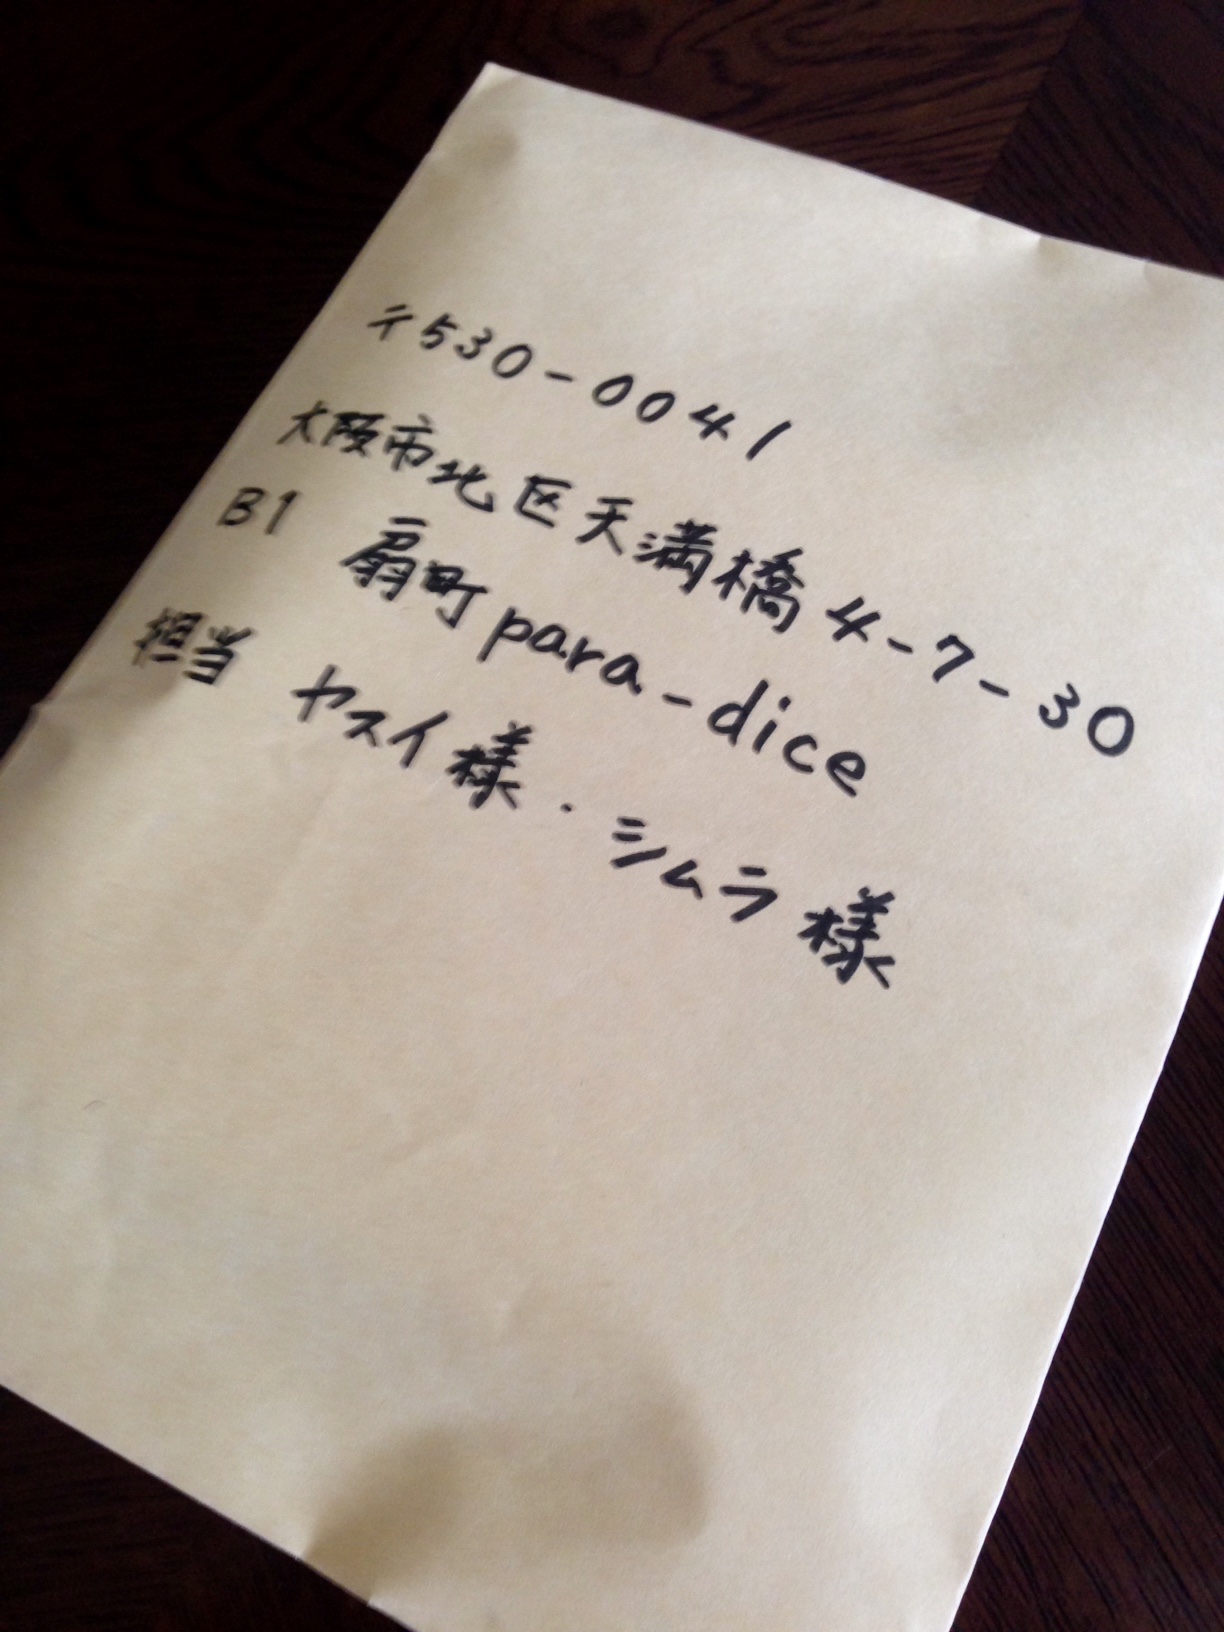 〒530-0041
大阪市北区天満橋4-7-30
B1 扇町para-dice
担当 ヤスイ様・シムラ様